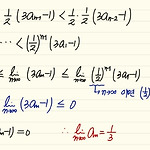 1/2 (3aₙ₋₁ - 1) < 1/2 · 1/2 (3aₙ₋₂ - 1)
··· < (1/2)ⁿ⁻¹ (3a₁ - 1)
≤ lim n→∞ (3aₙ - 1) ≤ lim n→∞ (1/2)ⁿ⁻¹ (3a₁ - 1)
n→∞ (1/2)
lim n→∞ (3aₙ - 1) ≤ 0
- 1) = 0 ∴ lim n→∞ aₙ = 1/3